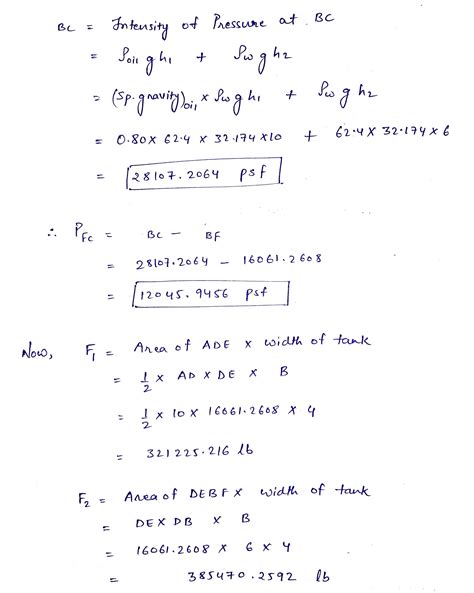 BC = Intensity of Pressure at BC
= ρoil g h1 + ρw g h2
= (Sp. gravity)oil × ρw g h1 + ρw g h2
= 0.80 × 62.4 × 32.174 × 10 + 62.4 × 32.174 × 6
= 28107.2064 psf
∴ PFC = BC - BF
= 28107.2064 - 16061.2608
= 12045.9456 psf
Now, F1 = Area of ADE × width of tank
= 1/2 × AD × DE × B
= 1/2 × 10 × 16061.2608 × 4
= 321225.216 lb
F2 = Area of DEBF × width of tank
= DE × DB × B
= 16061.2608 × 6 × 4
= 385470.2592 lb